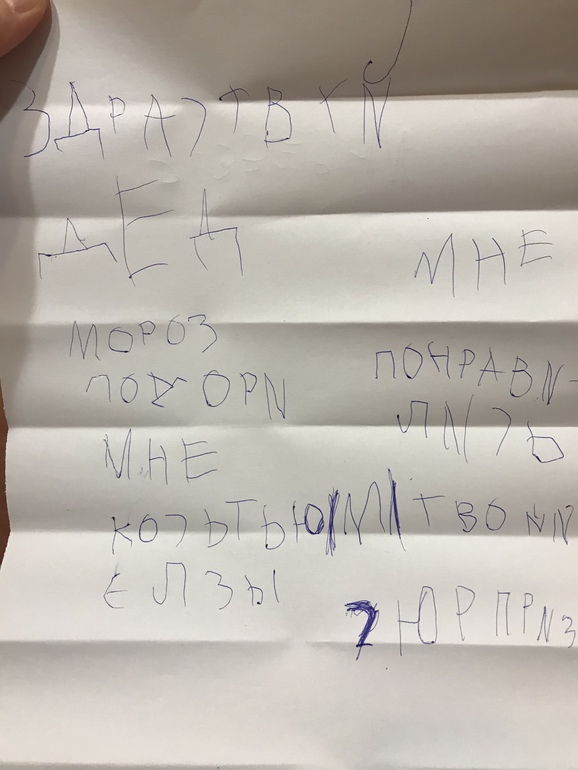 ЗДРАСТВУЙ
ДЕД
МОРОЗ
ПОДОРИ
МНЕ
КОСЬТЬЮМ
ЕЛЗЫ
МНЕ
ПОНРАВИ-
ЛИСЬ
ТВОИИ
СЮРПРИЗ